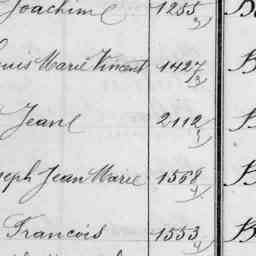 Joachim 1255
ouis Marie Vincent 1427
Jean 2112
seph Jean Marie 1568
Francois 1553